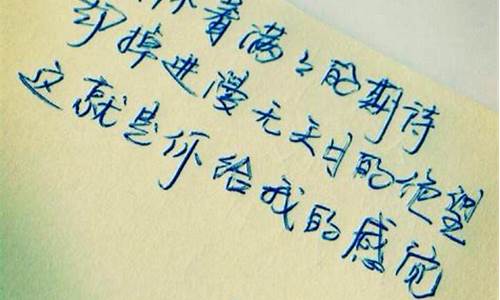 怀着满々的期待
却掉进漫无天日的绝望
这就是你给我的感觉